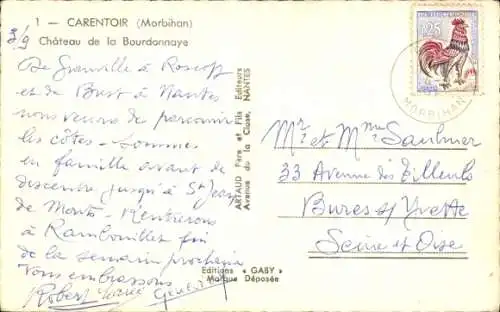 1 — CARENTOIR (Morbihan)
Château de la Bourdonnaye
3/9
De Granville à Roscoff
et de Brest à Nantes
nous venons de parcourir
les côtes - Sommes
en famille avant de
descendre jusqu'à St Jean
de Monts - Rentrerons
à Rambouillet fin
de la semaine prochaine
Vous embrassons
Robert
ARTAUD Père et Fils Editeurs
Avenue de la Close, NANTES
Editions « GABY »
Marque Déposée
0,25
MORBIHAN
Mr et Mme Saulnier
33 Avenue des Tilleuls
Bures s/ Yvette
Seine et Oise